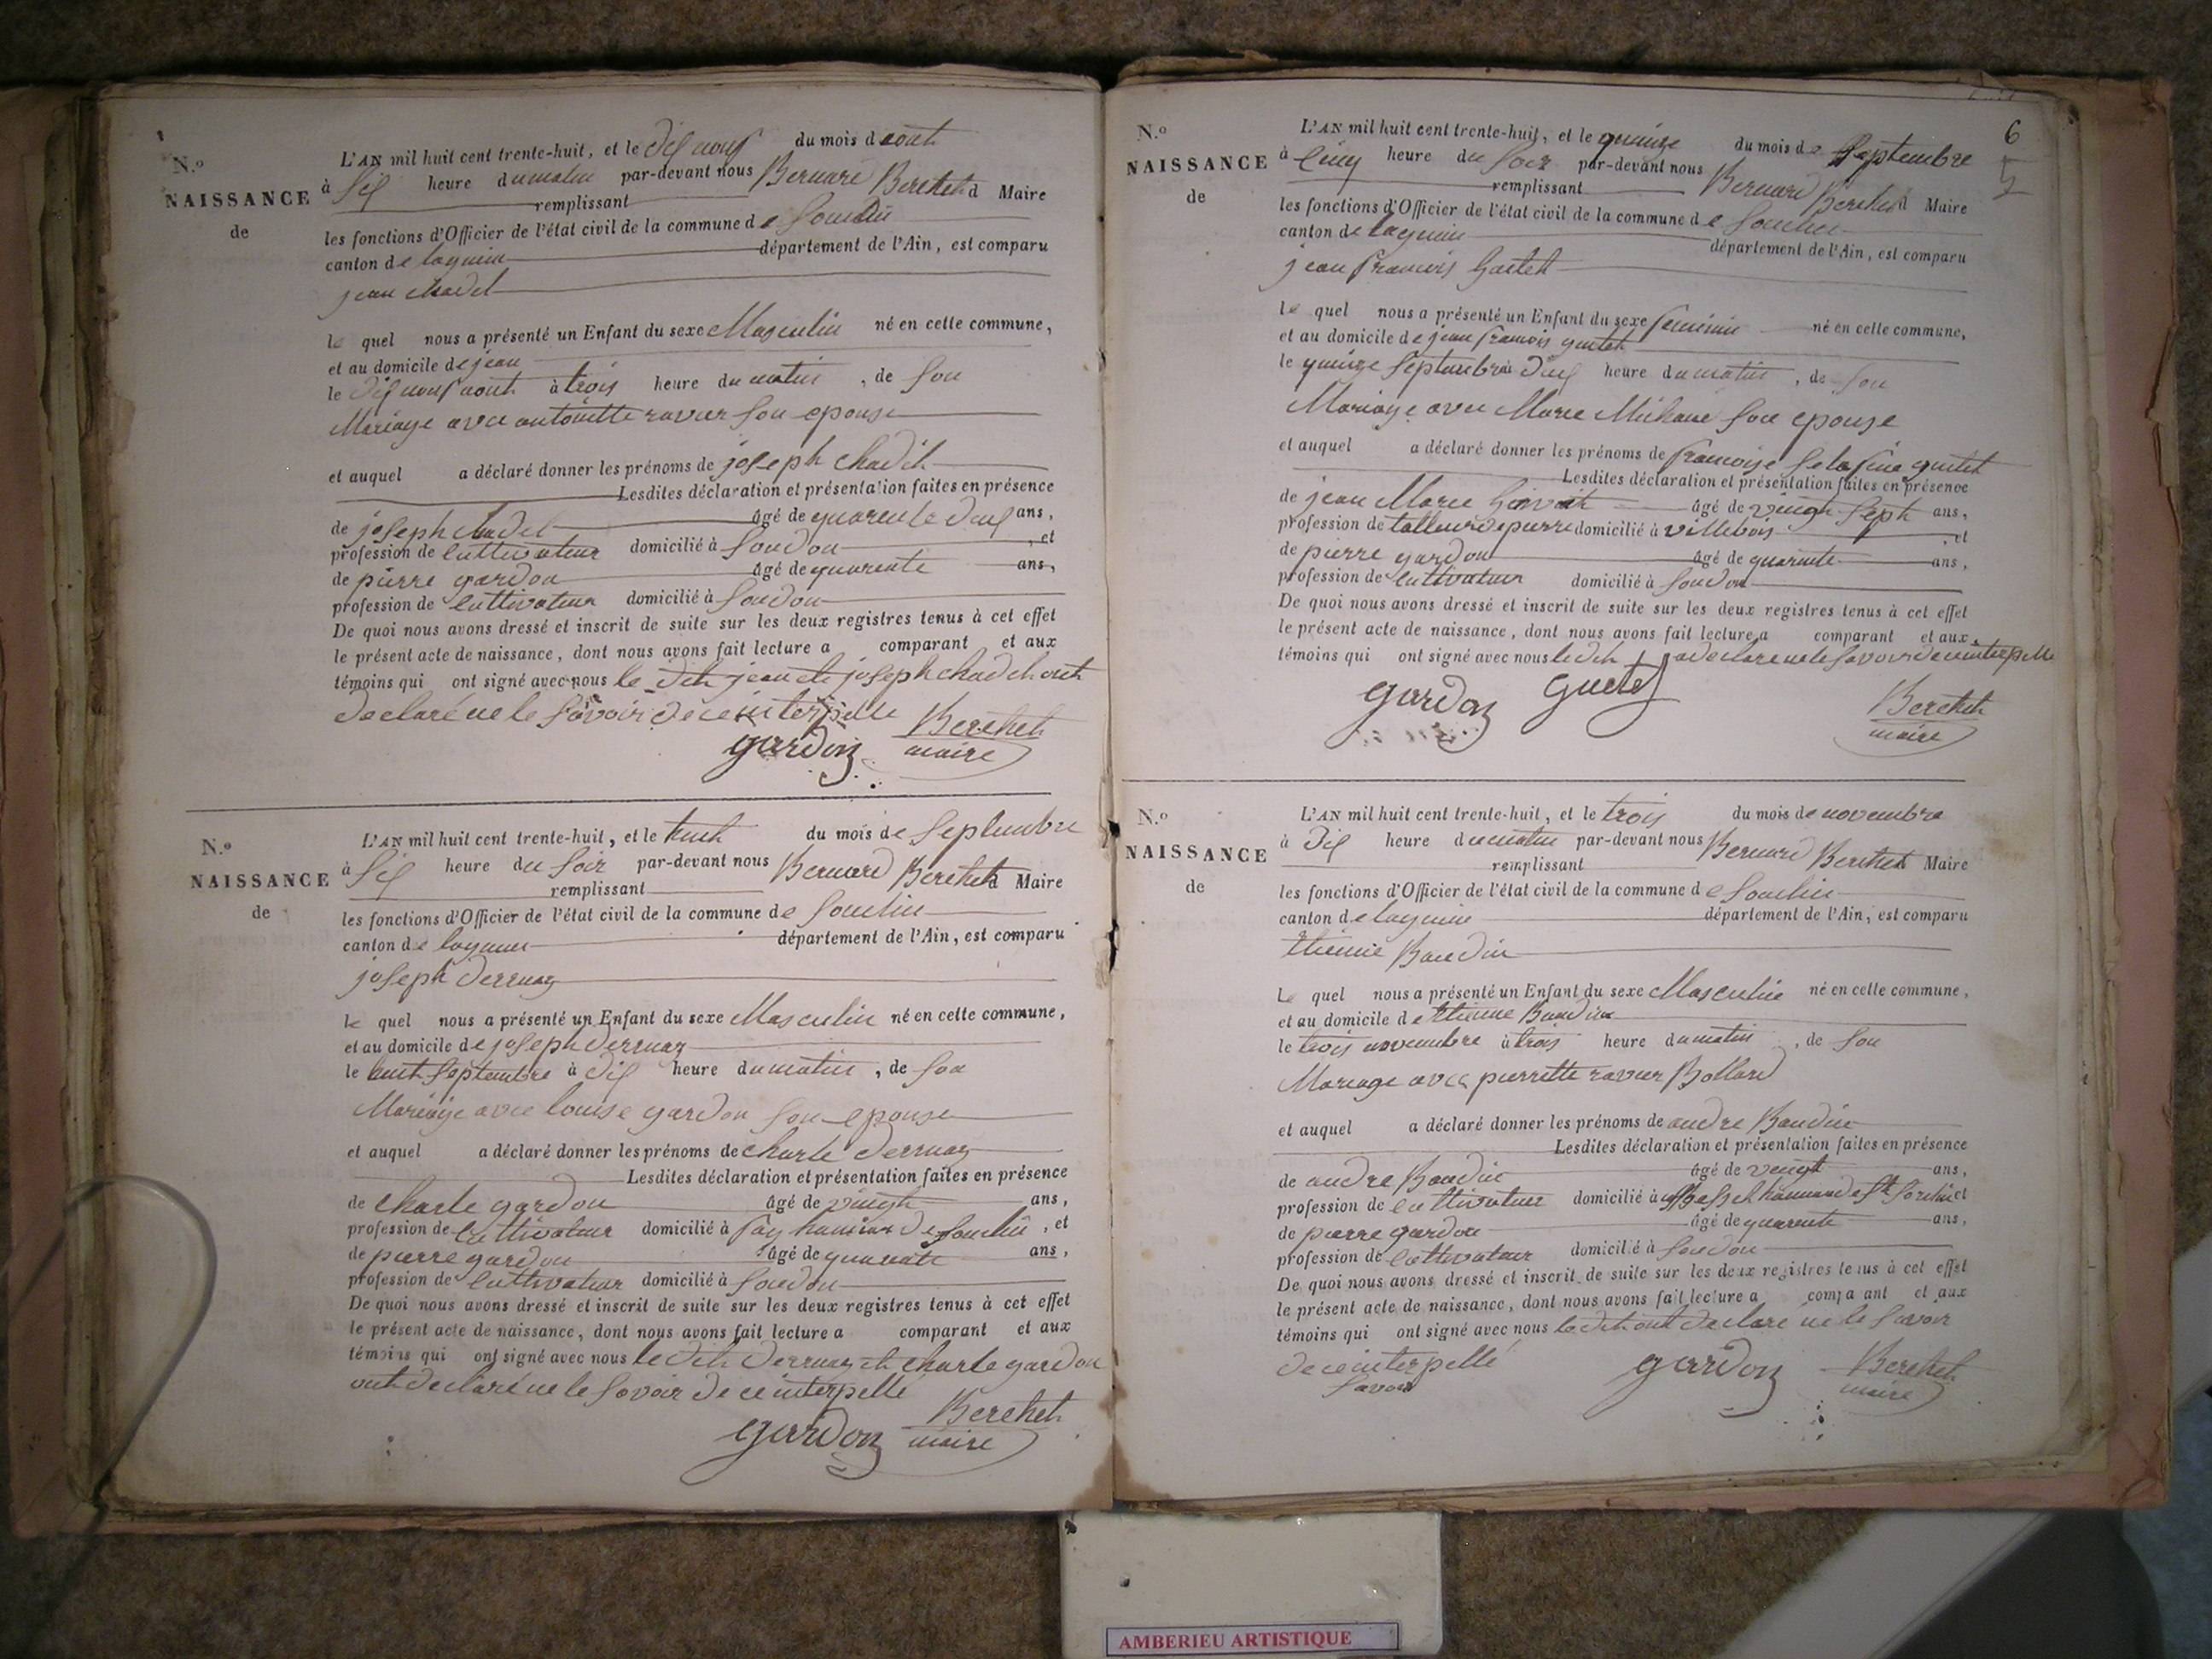 N.º
NAISSANCE
de
L'AN mil huit cent trente-huit, et le dix nouf du mois d août
à Six heure du matin par-devant nous Bernard Berchet d Maire
remplissant
les fonctions d'Officier de l'état civil de la commune de
canton de lagnieu département de l'Ain, est comparu
jean chadel
le quel nous a présenté un Enfant du sexe Masculin né en cette commune,
et au domicile de jean
le dix nouf aout à trois heure du matin, de son
Mariage avec antoinette ravier son epouse
et auquel a déclaré donner les prénoms de joseph chadel
Lesdites déclaration et présentation faites en présence
de joseph chadel âgé de quarente deux ans,
profession de cultivateur domicilié à Soudon, et
de pierre gardon âgé de quarente ans,
profession de cultivateur domicilié à Soudon
De quoi nous avons dressé et inscrit de suite sur les deux registres tenus à cet effet
le présent acte de naissance, dont nous avons fait lecture a comparant et aux
témoins qui ont signé avec nous le dit jean et joseph chadel ont
declaré ne le savoir de ce interpellé
gardon Berchet
maire
N.º
NAISSANCE
de
L'AN mil huit cent trente-huit, et le huit du mois de Septembre
à Six heure du Soir par-devant nous Bernard Berchet d Maire
remplissant
les fonctions d'Officier de l'état civil de la commune de Souclin
canton de lagnieu département de l'Ain, est comparu
joseph derruaz
le quel nous a présenté un Enfant du sexe Masculin né en cette commune,
et au domicile de joseph derruaz
le huit Septembre à dix heure du matin, de son
Mariage avec louise gardon son epouse
et auquel a déclaré donner les prénoms de charle derruaz
Lesdites déclaration et présentation faites en présence
de charle gardon âgé de vingt ans,
profession de cultivateur domicilié à de Souclin, et
de pierre gardon âgé de quarente ans,
profession de cultivateur domicilié à Soudon
De quoi nous avons dressé et inscrit de suite sur les deux registres tenus à cet effet
le présent acte de naissance, dont nous avons fait lecture a comparant et aux
témoins qui ont signé avec nous le dit derruaz et charle gardon
ont declaré ne le savoir de ce interpellé
gardon Berchet
maire
6
5
N.º
NAISSANCE
de
L'AN mil huit cent trente-huit, et le quinze du mois de Septembre
à Cinq heure du Soir par-devant nous Bernard Berchet d Maire
remplissant
les fonctions d'Officier de l'état civil de la commune de Souclin
canton de lagnieu département de l'Ain, est comparu
jean francois
le quel nous a présenté un Enfant du sexe feminin né en cette commune,
et au domicile de jean francois guitet
le quinze Septembre à deux heure du matin, de son
Mariage avec Marie son epouse
et auquel a déclaré donner les prénoms de francoise guitet
Lesdites déclaration et présentation faites en présence
de jean Marie âgé de vingt Sept ans,
profession de talleur de pierre domicilié à villebois, et
de pierre gardon âgé de quarente ans,
profession de cultivateur domicilié à Soudon
De quoi nous avons dressé et inscrit de suite sur les deux registres tenus à cet effet
le présent acte de naissance, dont nous avons fait lecture a comparant et aux
témoins qui ont signé avec nous le dit a declare ne le savoir de ce interpellé
gardon Berchet
maire
N.º
NAISSANCE
de
L'AN mil huit cent trente-huit, et le trois du mois de novembre
à dix heure du matin par-devant nous Bernard Berchet d Maire
remplissant
les fonctions d'Officier de l'état civil de la commune de Souclin
canton de lagnieu département de l'Ain, est comparu
Etienne Baudin
Le quel nous a présenté un Enfant du sexe Masculin né en cette commune,
et au domicile de Etienne Baudin
le trois novembre à trois heure du matin, de son
Mariage avec pierrette ravier Bollard
et auquel a déclaré donner les prénoms de andre Baudin
Lesdites déclaration et présentation faites en présence
de andre Baudin âgé de vingt ans,
profession de cultivateur domicilié à de St Sorlin et
de pierre gardon âgé de quarente ans,
profession de cultivateur domicilié à Soudon
De quoi nous avons dressé et inscrit de suite sur les deux registres tenus à cet effet
le présent acte de naissance, dont nous avons fait lecture a comparant et aux
témoins qui ont signé avec nous le dit ont declaré ne le savoir
de ce interpellé gardon Berchet
savoir maire
AMBERIEU ARTISTIQUE